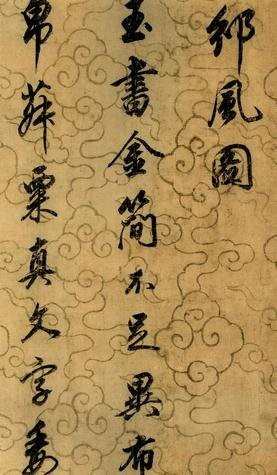 邠風圖
玉書金簡不足異布
帛菽粟真文字